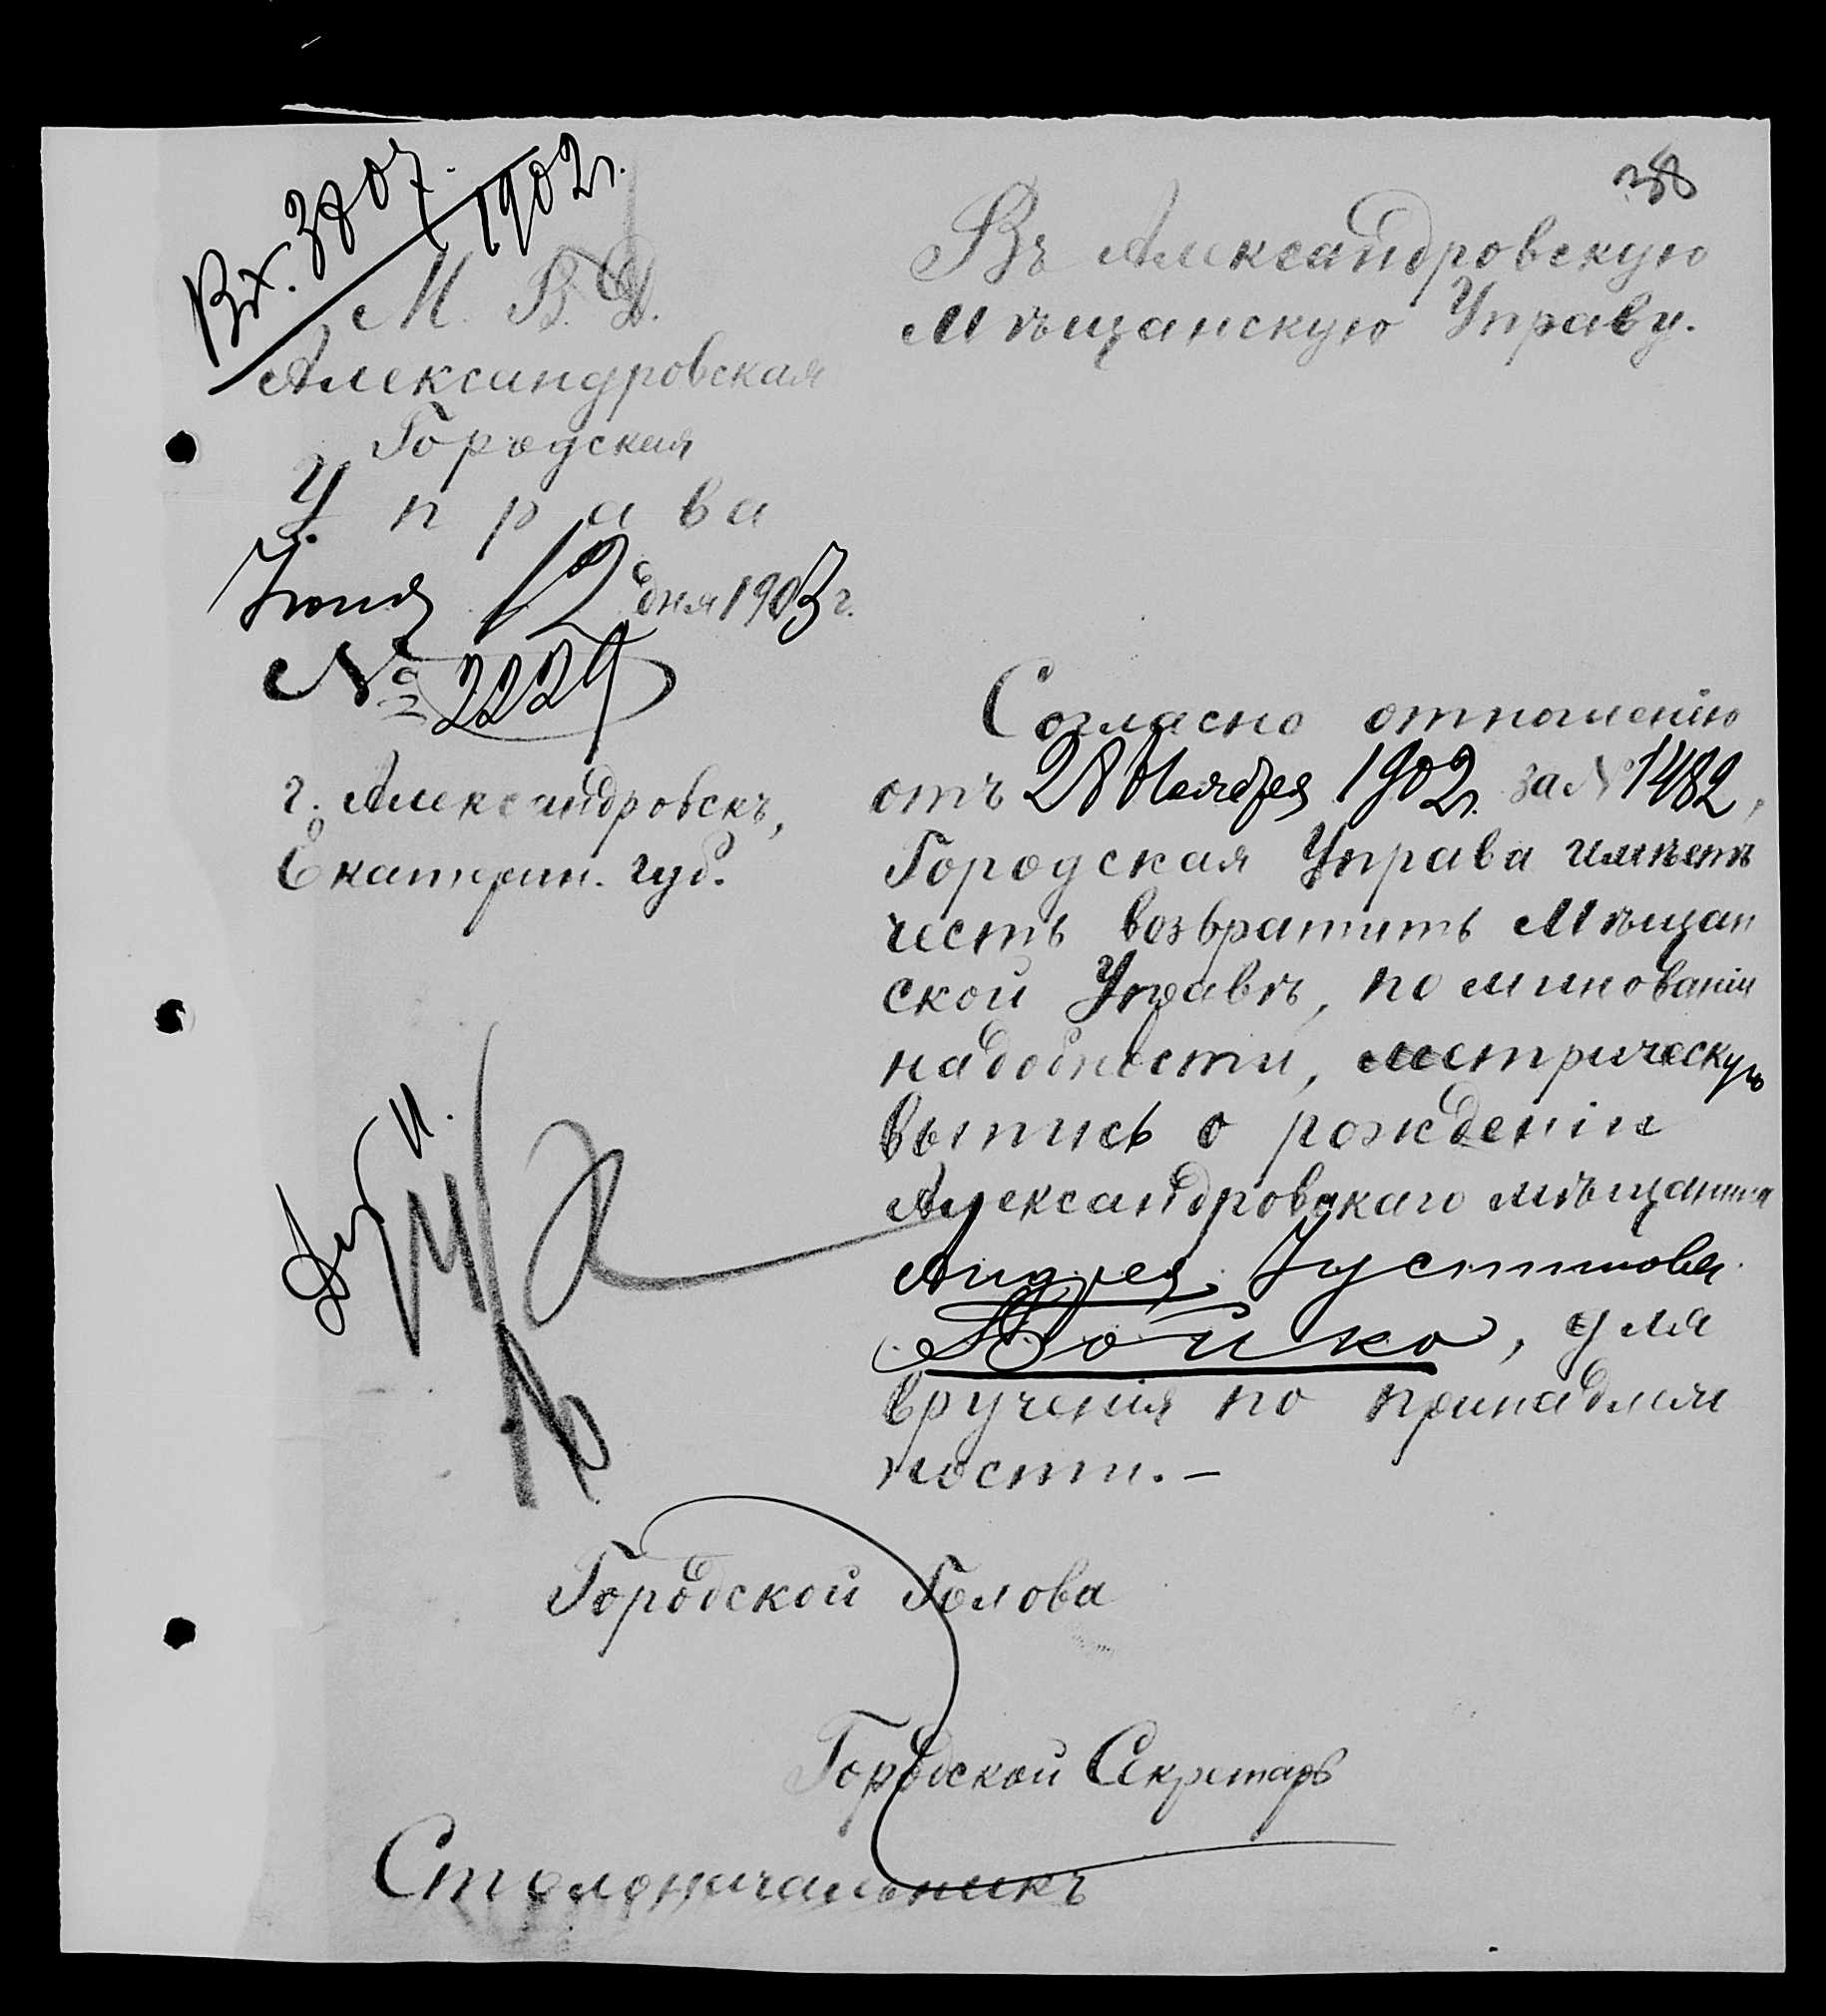 Вх. 3807.
1902 г.
38
М. В. Д.
Александровская
Городская
Управа
Іюня 12 дня 1903 г.
№ 2229
г. Александровскъ,
Екатерин. губ.
Въ Александровскую
Мѣщанскую Управу.
Согласно отношенію
отъ 28 Ноября 1902 г. за № 1482,
Городская Управа имѣетъ
честь возвратить Мѣщан
ской Управѣ, по минованіи
надобности, метрическую
выпись о рожденіи
Александровскаго мѣщанина
Андрея Іустинова
Бойко, для
врученія по принадлеж
ности. —
Городской Голова
Городской Секретарь
Столоначальникъ